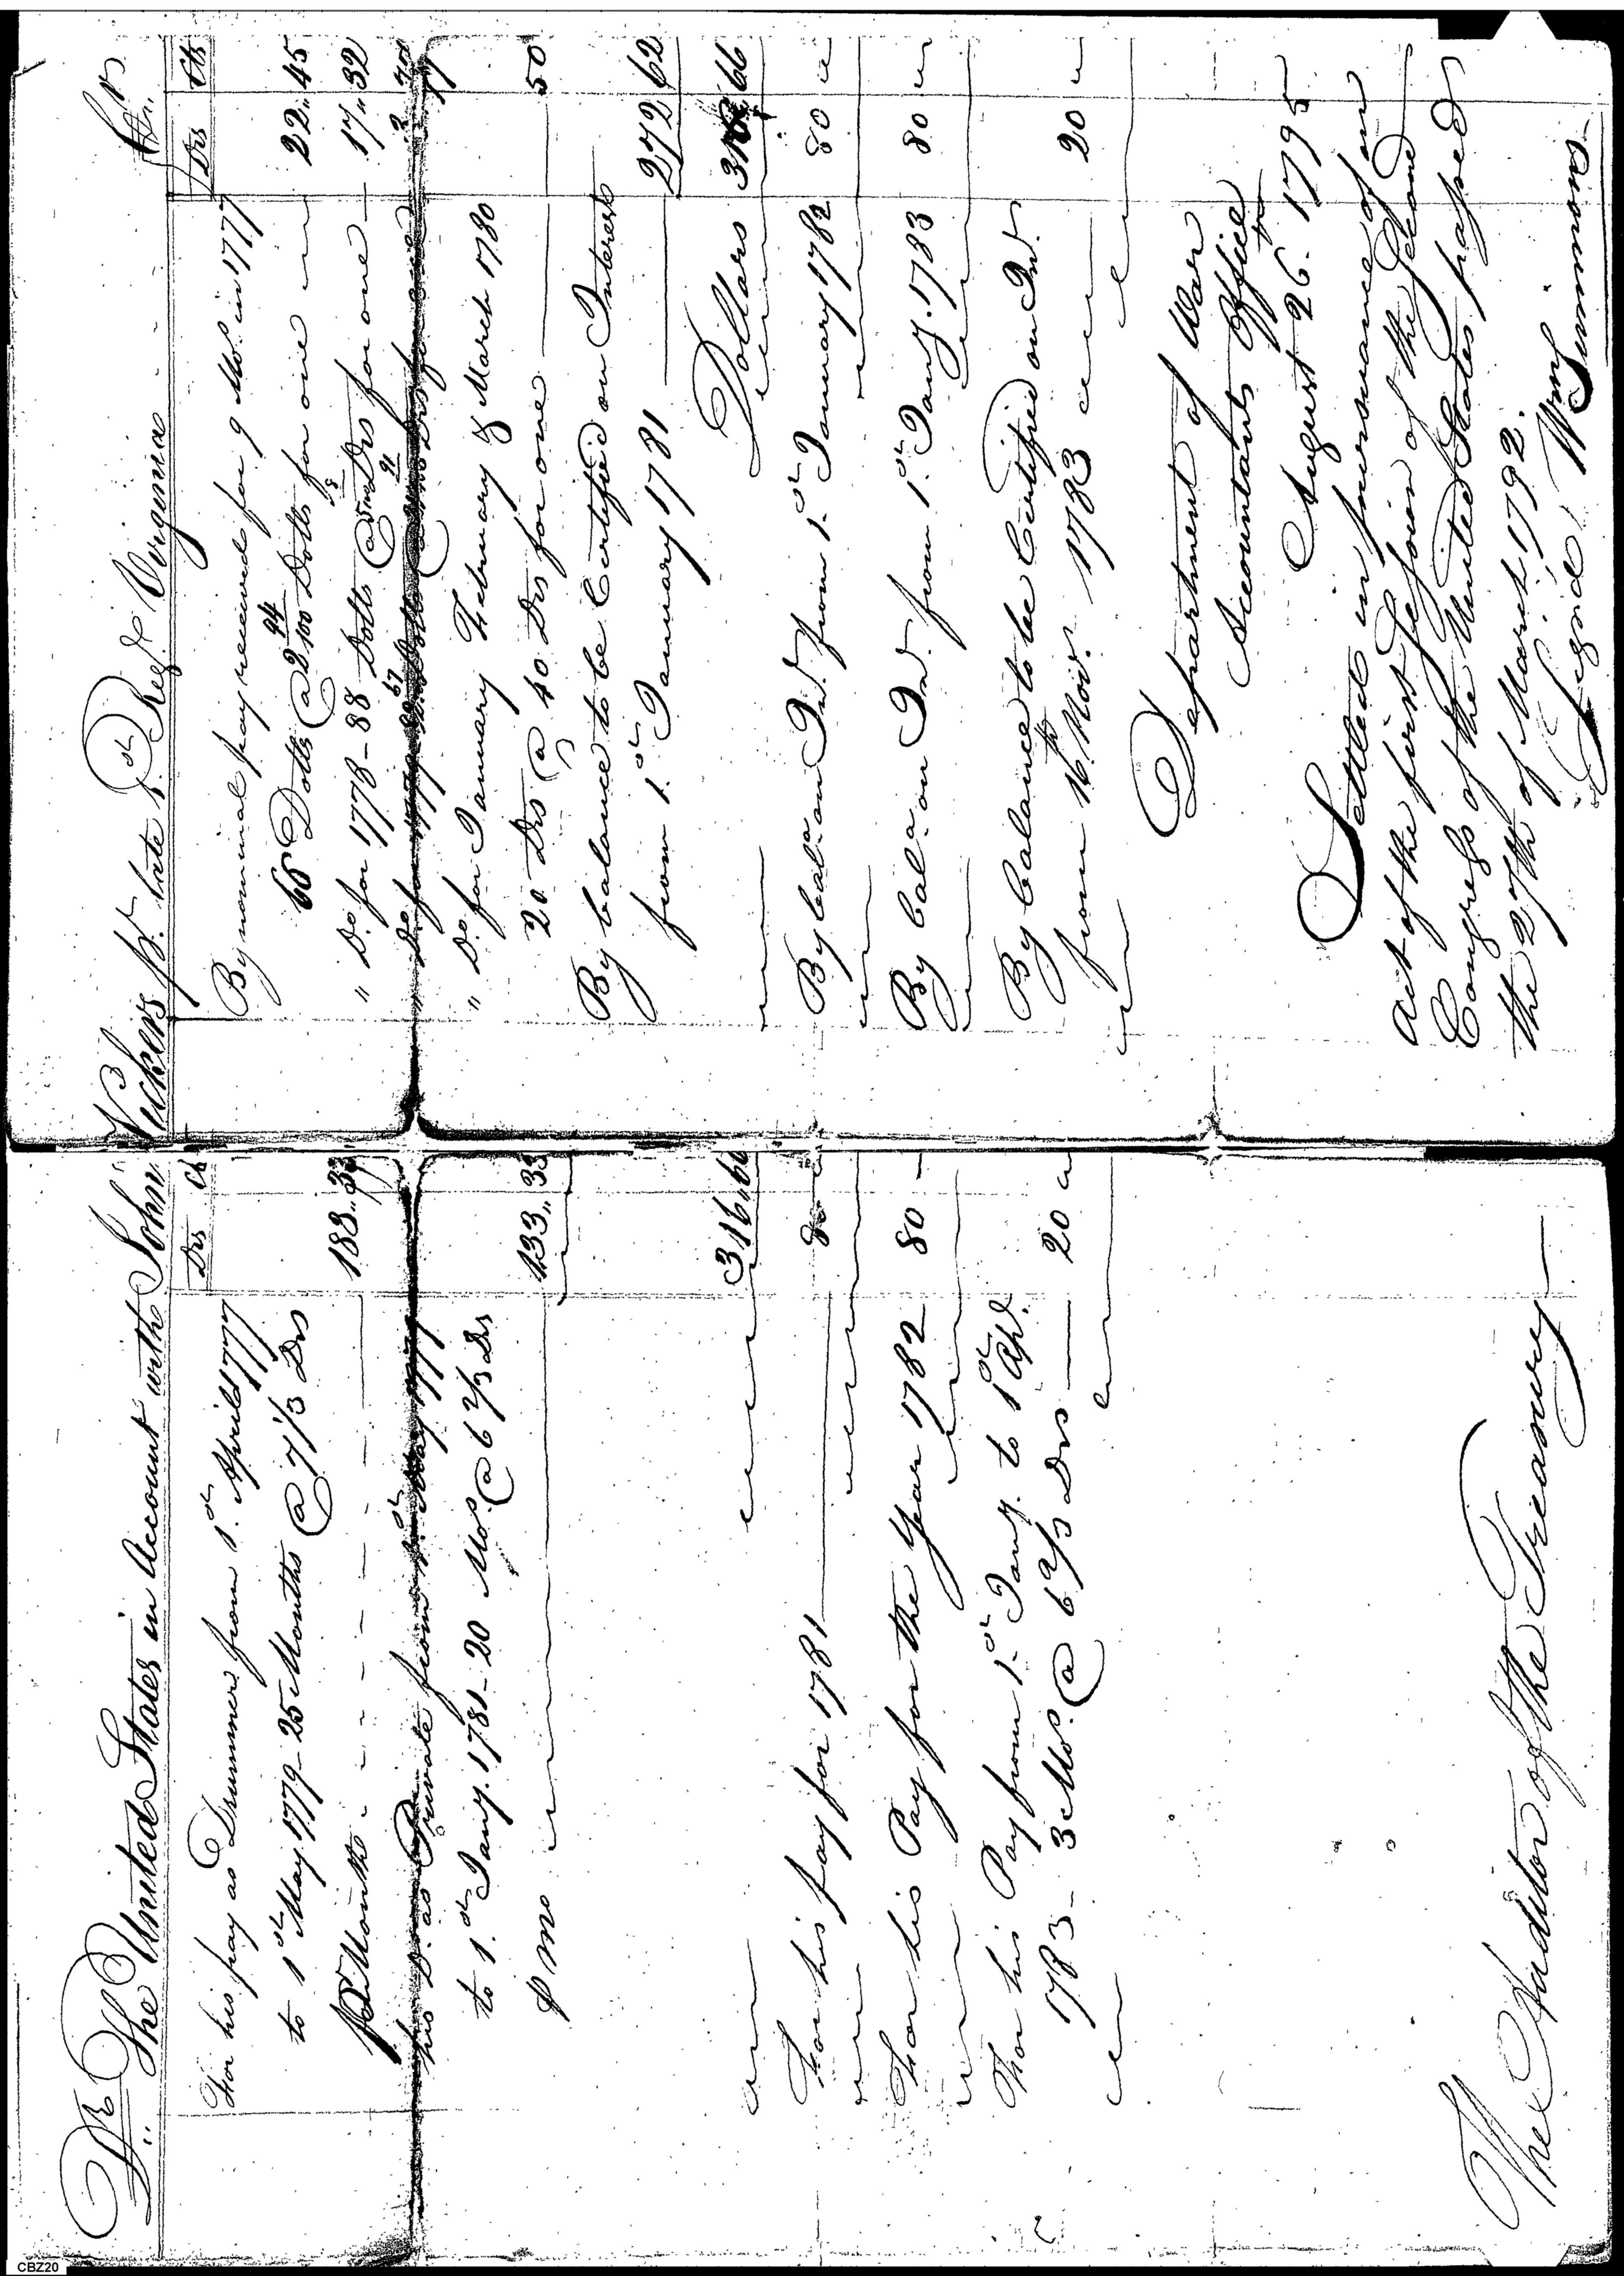 Dr The United States in Account with John
Drs Cts
For his pay as Drummer from 1.st April 1777
to 1st May 1779 - 25 Months @ 7 1/3 Drs
Month 183..33
his Do as Private from 1.st May 1779
to 1.st Jany. 1781 - 20 Mos. @ 6 2/3 Drs
p mo 133..33
316..66
For his pay for 1781 80
For his Pay for the Year 1782 80
For his Pay from 1.st Jany. to 1st Apl.
1783 - 3 Mos. @ 6 2/3 Drs 20
The Auditor of the Treasury
Vickers late Regt Virginia Cr
Drs Cts
By nominal pay received for 9 Mos. in 1777
Dolls @ 2 94/100 Dolls for one 22..45
" Do for 1778 - 88 Dolls @ Drs for one 17..32
" Do for 1779
" Do for January February & March 1780
20 Drs @ 40 Drs for one 50
By balance to be Certified on Interest
from 1.st January 1781 272 62
Dollars 316 66
By bala. on Int. from 1.st January 1782 80
By bala. on Int. from 1.st Jany. 1783 80
By balance to be Certified on Int.
from 16th Nov. 1783 20
Department of War
Accountants Office
August 26th 1795
Settled in pursuance of an
act of the first Session of the Second
Congress of the United States passed
the 27th of March 1792.
Signed Wm Simmons
CBZ20